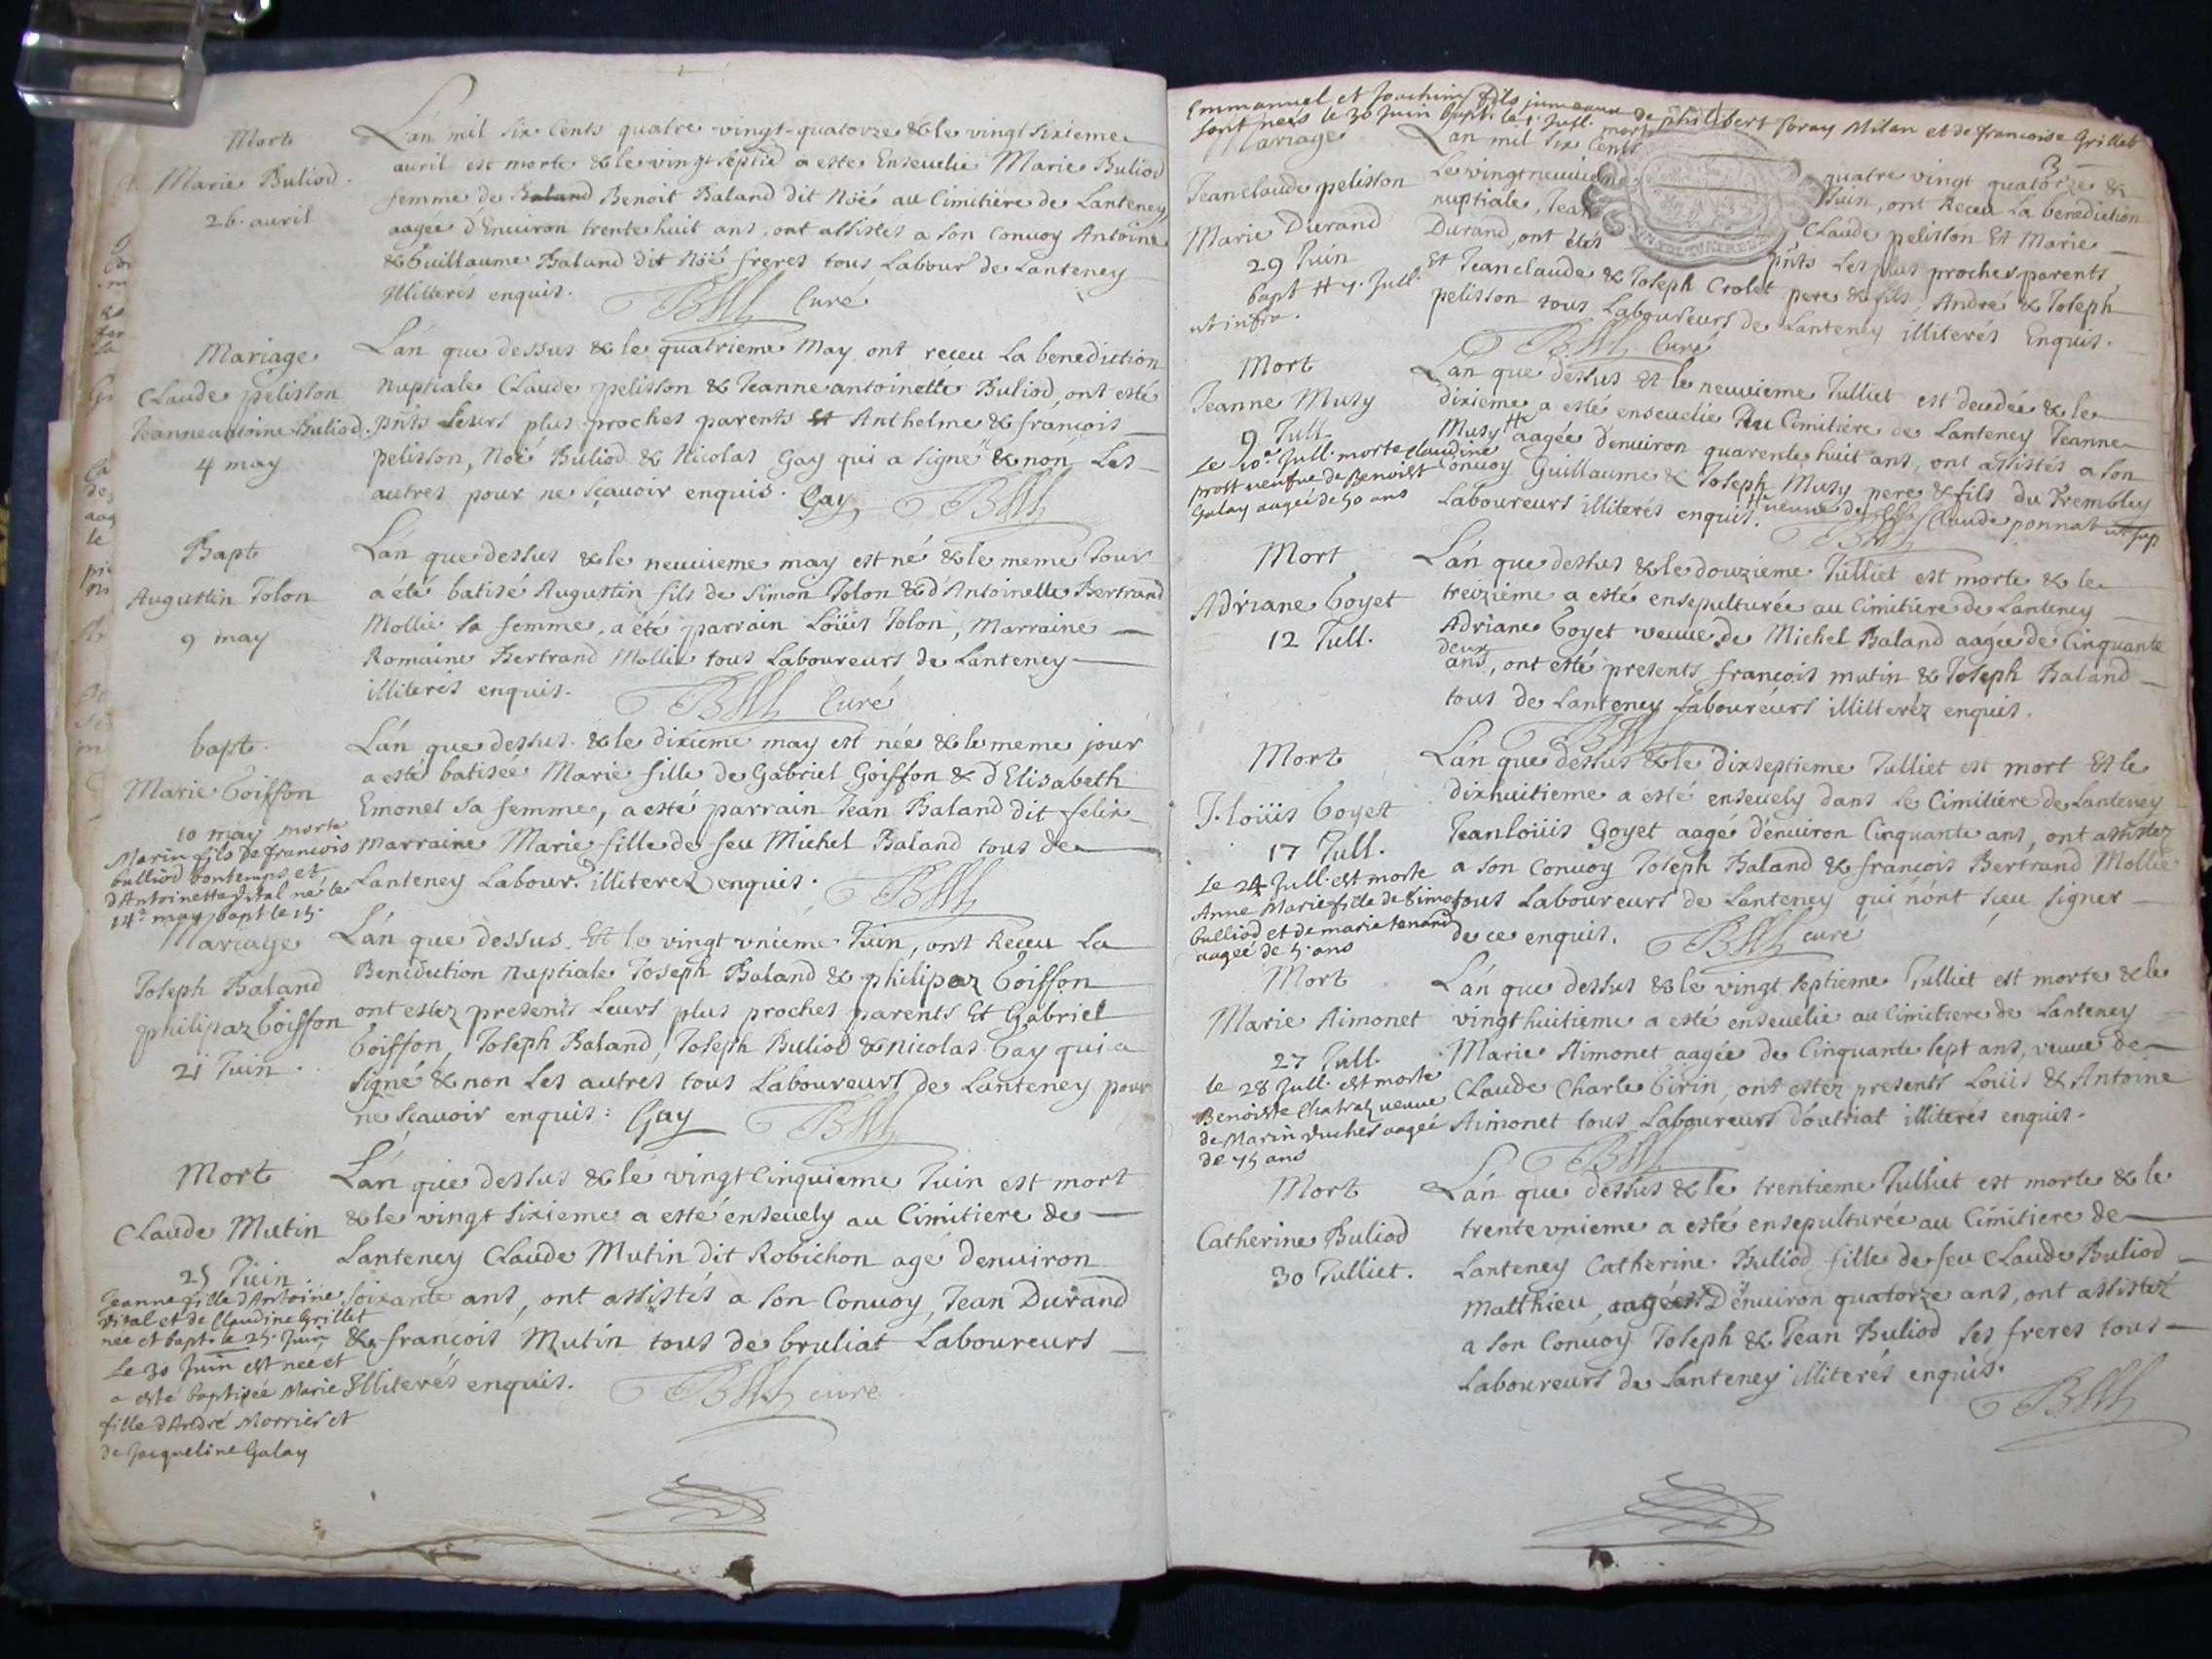 Mort
Marie Buliod.
26. auril
L'an mil six Cents quatre vingt-quatorze & le vingt sixieme
auril est morte & le vingt septie a este Enseuelie Marie Buliod
femme de Baland Benoit Baland dit Noë au Cimitiere de Lanteney
aagée d'Enuiron trente huit ans, ont assistés a son Conuoy Antoine
& Guillaume Baland dit Noë freres tous Labour de Lanteney
Illiteres enquis. Curé
Mariage
Claude pelisson
Jeanne antoine Buliod.
4 may
L'an que dessus & le quatrieme May ont receu la benediction
Nuptiale Claude pelisson & Jeanne antoinette Buliod, ont esté
pnts Leurs plus proches parents Et Anthelme & francois
pelisson, Noë Buliod & Nicolas Gay qui a signé & non Les
autres pour ne sçauoir enquis. Gay
Bapt
Augustin Jolon
9 may
L'an que dessus & le neuuieme may est né & le meme Jour
a été batisé Augustin fils de Simon Jolon & d'Antoinette Bertrand
Mollie sa femme, a été parrain Loüis Jolon, Marraine
Romaine Bertrand Mollie tous Laboureurs de Lanteney
illiterés enquis. Curé
bapt.
Marie Goiffon
10 may morte
Marin fils de francois
bulliod bontemps et
d'Antoinette Vital né le
14e may, bapt le 15.
L'an que dessus. & le dixieme may est née & le meme jour
a esté batisée Marie fille de Gabriel Goiffon & d'Elisabeth
Emonet sa femme, a esté parrain Jean Baland dit felix
Marraine Marie fille de feu Michel Baland tous de
Lanteney Labour. illiterez enquis.
Mariage
Joseph Baland
philipaz Goiffon
21 Juin.
L'an que dessus. Et le vingt vnieme Juin, ont Receu La
Benediction Nuptiale Joseph Baland & philipaz Goiffon
ont estez presents Leurs plus proches parents Et Gabriel
Goiffon, Joseph Baland, Joseph Buliod & Nicolas Gay qui a
signé & non Les autres tous Laboureurs de Lanteney pour
ne sçauoir enquis: Gay
Mort
Claude Mutin
25 Juin
Jeanne fille d'Antoine
Vital et de Claudine Grillet
née et bapt. le 25. Juin
Le 30 Juin est nee et
a esté baptisée Marie
fille d'André Morrier et
de Jacqueline Galay
L'an que dessus & le vingt Cinquieme Juin est mort
& le vingt sixieme a esté enseuely au Cimitiere de
Lanteney Claude Mutin dit Robichon agé denuiron
soixante ans, ont assistés a son Conuoy, Jean Durand
& françois Mutin tous de bruliat Laboureurs
Illiterés enquis. curé
Emmanuel et Joachim fils jumeaux de philibert foray Milan et de francoise Grillet
sont neés le 30 Juin bapt. le 1. Jull. morts
3
Mariage
Jeanclaude pelisson
Marie Durand
29 Juin
ut infra.
L'an mil six Cents quatre vingt quatorze &
Le vingt neuuieme Juin, ont Receu La benediction
nuptiale, Jean Claude pelisson Et Marie
Durand, ont étés pnts Les plus proches parents
Et Jeanclaude & Joseph Crolet pere & fils, André & Joseph
pelisson tous Laboureurs de Lanteney illiterés Enquis.
Curé
Mort
Jeanne Musy
9 Jull.
Le 10e Jull. morte Claudine
prost veufue de Benoist
Galay aagée de 50 ans
L'an que dessus Et le neuuieme Julliet est decedée & le
dixieme a esté enseuelie Au Cimitiere de Lanteney Jeanne
Musy aagée d'enuiron quarente huit ans, ont assistés a son
Conuoy Guillaume & Joseph Musy pere & fils du Trembley
Laboureurs illiterés enquis. veuue de Claude ponnat
Mort
Adriane Goyet
12 Jull.
L'an que dessus & le douzieme Julliet est morte & le
treizieme a esté ensepulturée au Cimitiere de Lanteney
Adriane Goyet veuue de Michel Baland aagée de Cinquante
deux
ans, ont esté presents françois mutin & Joseph Baland
tous de Lanteney Laboureurs illitteréz enquis.
Mort
J. Loüis Goyet
17 Jull.
Le 24 Jull. est morte
Anne Marie fille de Simon
bulliod et de marie tenand
aageé de 5. ans
L'an que dessus & le dixseptieme Julliet est mort Et le
dixhuitieme a esté enseuely dans le Cimitiere de Lanteney
Jeanloüis Goyet aagé d'enuiron Cinquante ans, ont assistez
a son Conuoy Joseph Baland & françois Bertrand Mollie
tous Laboureurs de Lanteney qui n'ont sceu signer
de ce enquis. curé
Mort
Marie Aimonet
27 Jull.
le 28 Jull. est morte
Benoiste Chatrat veuue
de Marin duches aageé
de 75 ans
L'an que dessus & le vingt septieme Julliet est morte & le
vingt huitieme a esté enseuelie au Cimitiere de Lanteney
Marie Aimonet aagée de Cinquante sept ans, veuue de
Claude Charle Girin, ont estez presents Loüis & Antoine
Aimonet tous Laboureurs d'outriat illiterés enquis.
Mort
Catherine Buliod
30 Julliet.
L'an que dessus & le trentieme Julliet est morte & le
trente vnieme a esté ensepulturée au Cimitiere de
Lanteney Catherine Buliod fille de feu Claude Buliod
Matthieu, aagée D'enuiron quatorze ans, ont assistez
a son Conuoy Joseph & Jean Buliod ses freres tous
Laboureurs de Lanteney illiterés enquis.